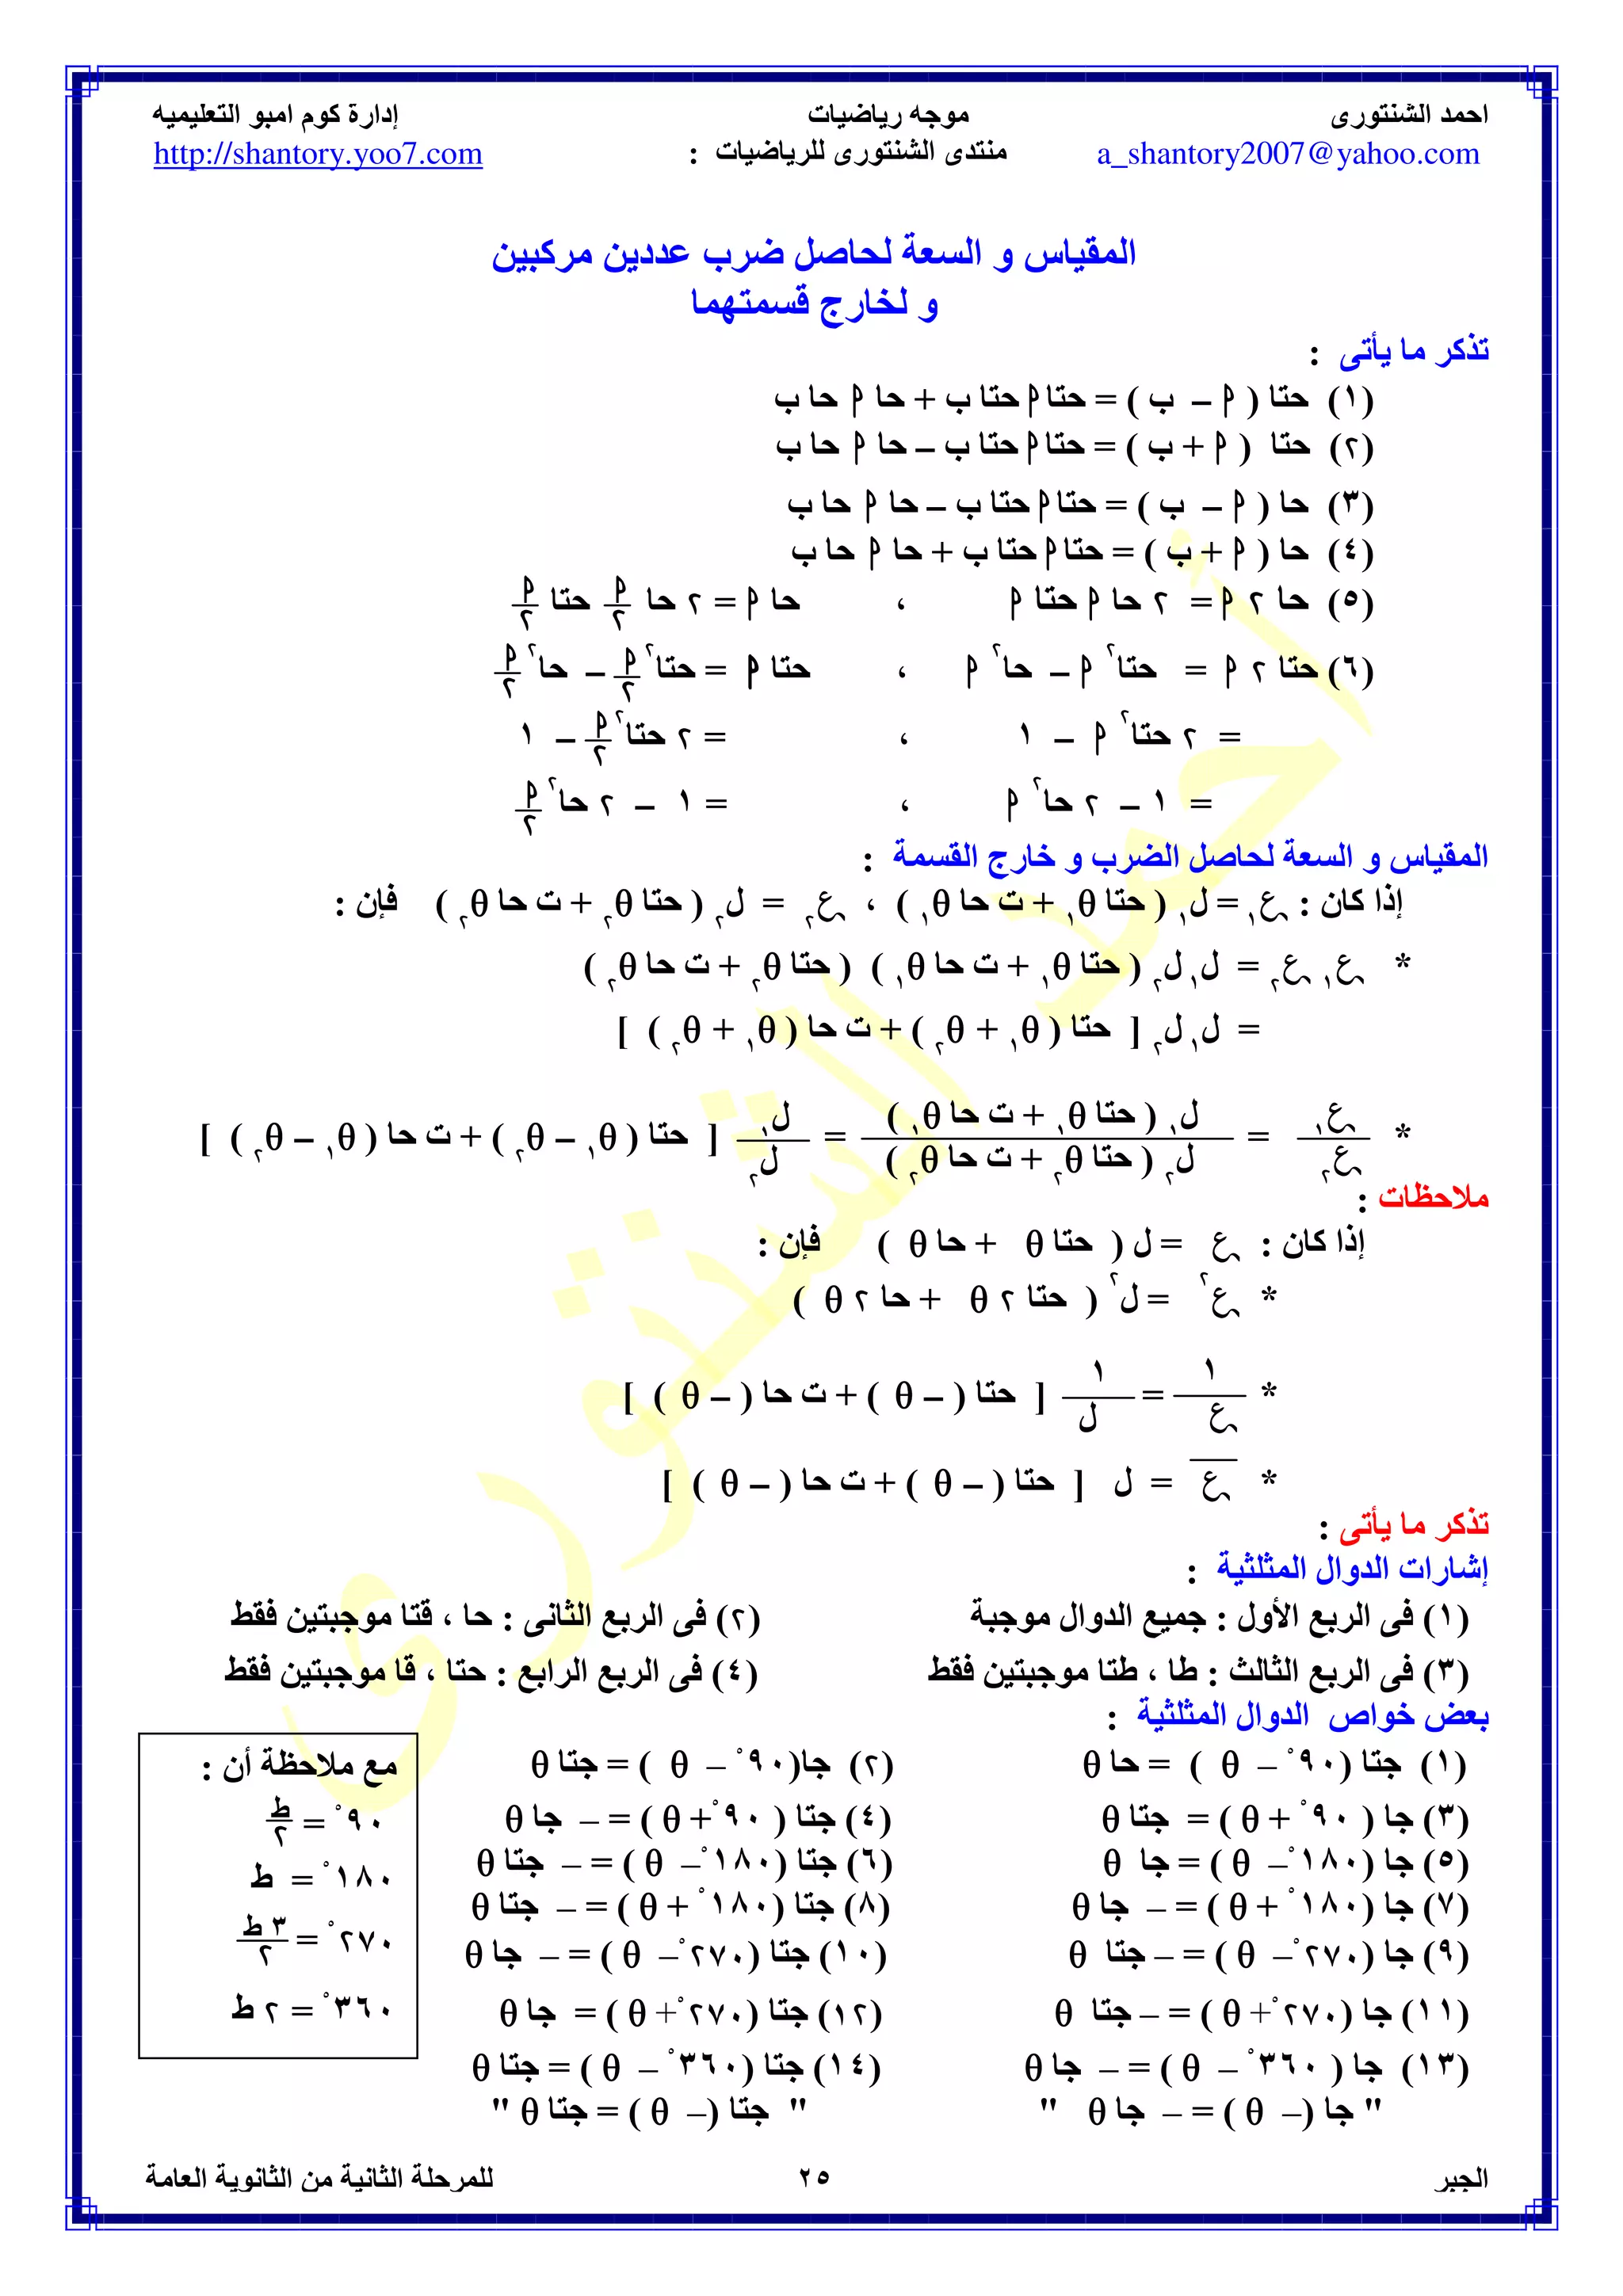 احمد الشنتورى موجه رياضيات إدارة كوم امبو التعليميه
a_shantory2007@yahoo.com منتدى الشنتورى للرياضيات : http://shantory.yoo7.com
المقياس و السعة لحاصل ضرب عددين مركبين
و لخارج قسمتهما
تذكر ما يأتى :
(١) حتا ( ا – ب ) = حتا ا حتا ب + حا ا حا ب
(٢) حتا ( ا + ب ) = حتا ا حتا ب – حا ا حا ب
(٣) حا ( ا – ب ) = حتا ا حتا ب – حا ا حا ب
(٤) حا ( ا + ب ) = حتا ا حتا ب + حا ا حا ب
(٥) حا ٢ ا = ٢ حا ا حتا ا ، حا ا = ٢ حا ا/٢ حتا ا/٢
(٦) حتا ٢ ا = حتا٢ ا – حا٢ ا ، حتا ا = حتا٢ ا/٢ – حا٢ ا/٢
= ٢ حتا٢ ا – ١ ، = ٢ حتا٢ ا/٢ – ١
= ١ – ٢ حا٢ ا ، = ١ – ٢ حا٢ ا/٢
المقياس و السعة لحاصل الضرب و خارج القسمة :
إذا كان : ع١ = ل١ ( حتا θ١ + ت حا θ١ ) ، ع٢ = ل٢ ( حتا θ٢ + ت حا θ٢ ) فإن :
* ع١ ع٢ = ل١ ل٢ ( حتا θ١ + ت حا θ١ ) ( حتا θ٢ + ت حا θ٢ )
= ل١ ل٢ [ حتا ( θ١ + θ٢ ) + ت حا ( θ١ + θ٢ ) ]
* ع١/ع٢ = ل١ ( حتا θ١ + ت حا θ١ ) / ل٢ ( حتا θ٢ + ت حا θ٢ ) = ل١/ل٢ [ حتا ( θ١ – θ٢ ) + ت حا ( θ١ – θ٢ ) ]
ملاحظات :
إذا كان : ع = ل ( حتا θ + حا θ ) فإن :
* ع٢ = ل٢ ( حتا ٢ θ + حا ٢ θ )
* ١/ع = ١/ل [ حتا ( – θ ) + ت حا ( – θ ) ]
* ع̅ = ل [ حتا ( – θ ) + ت حا ( – θ ) ]
تذكر ما يأتى :
إشارات الدوال المثلثية :
(١) فى الربع الأول : جميع الدوال موجبة (٢) فى الربع الثانى : حا ، قتا موجبتين فقط
(٣) فى الربع الثالث : طا ، طتا موجبتين فقط (٤) فى الربع الرابع : حتا ، قا موجبتين فقط
بعض خواص الدوال المثلثية :
(١) جتا (٩٠° – θ ) = حا θ (٢) جا(٩٠° – θ ) = جتا θ
(٣) جا ( ٩٠° + θ ) = جتا θ (٤) جتا ( ٩٠°+ θ ) = – جا θ
(٥) جا (١٨٠°– θ ) = جا θ (٦) جتا (١٨٠°– θ ) = – جتا θ
(٧) جا (١٨٠° + θ ) = – جا θ (٨) جتا (١٨٠° + θ ) = – جتا θ
(٩) جا (٢٧٠°– θ ) = – جتا θ (١٠) جتا (٢٧٠°– θ ) = – جا θ
(١١) جا (٢٧٠°+ θ ) = – جتا θ (١٢) جتا (٢٧٠°+ θ ) = جا θ
(١٣) جا ( ٣٦٠° – θ ) = – جا θ (١٤) جتا (٣٦٠° – θ ) = جتا θ
" جا (– θ ) = – جا θ " " جتا (– θ ) = جتا θ "
مع ملاحظة أن :
٩٠° = ط/٢
١٨٠° = ط
٢٧٠° = ٣ ط/٢
٣٦٠° = ٢ ط
الجبر ٢٥ للمرحلة الثانية من الثانوية العامة
أحمد الشنتورى